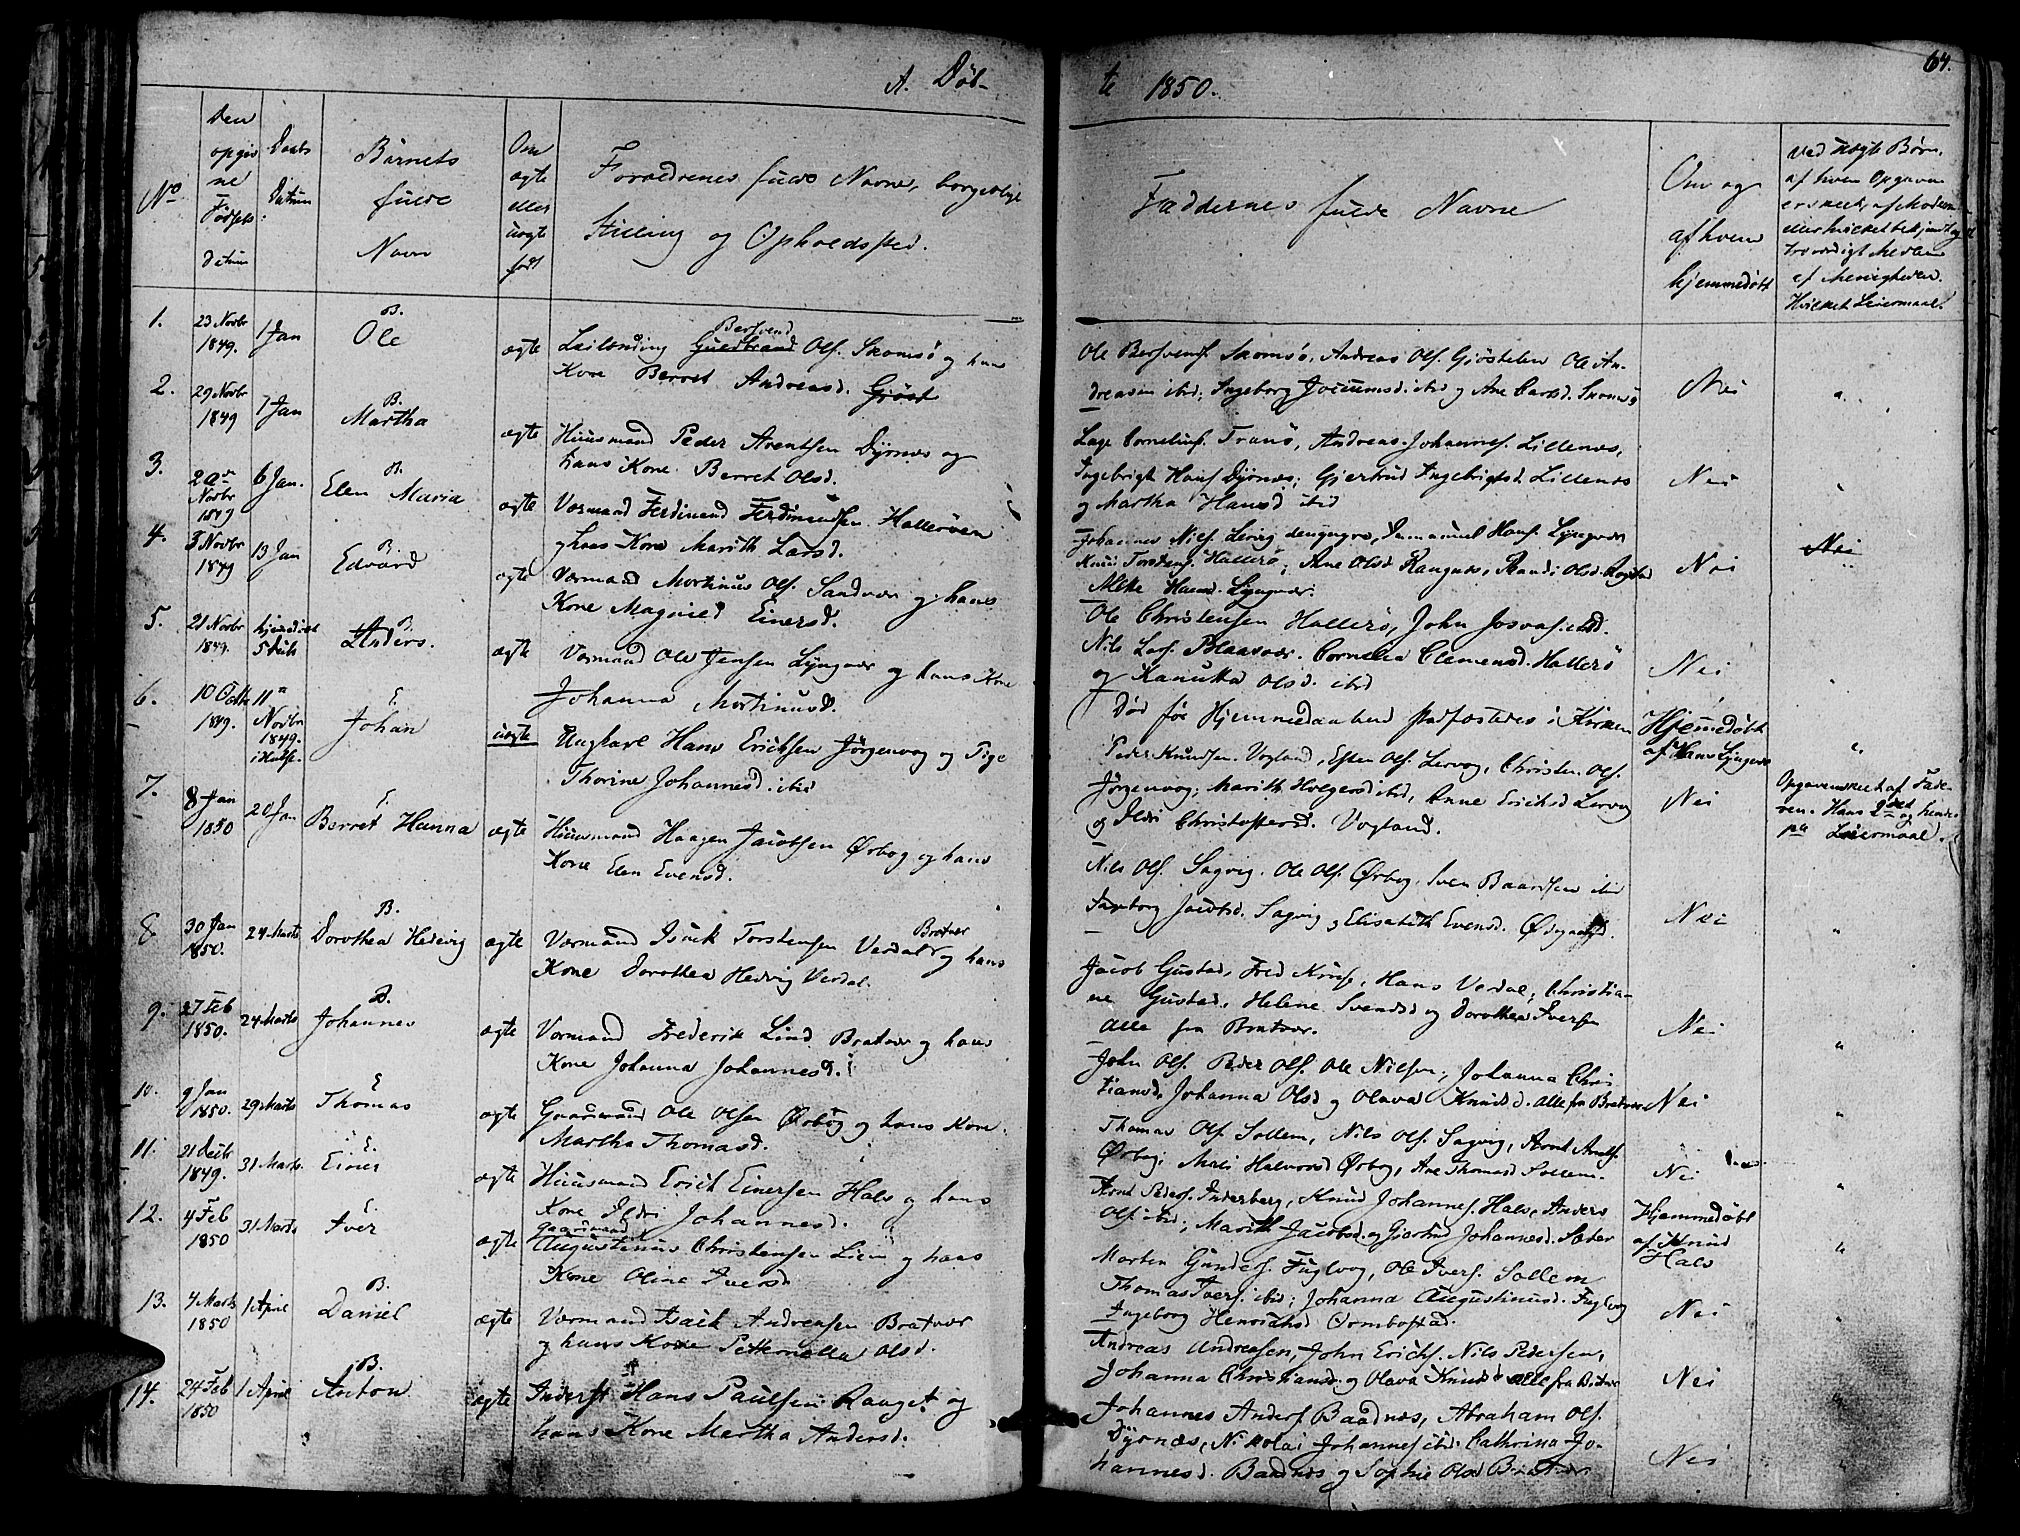 64.
A. Døb-
te 1850.
No
Den opgivne Fødsels Datum
Daabs Datum
Barnets fulde Navn
Om ægte eller uægte født
Forældrenes fulde Navne, borgerlige
Stilling og Opholdssted.
Faddernes fulde Navne
Om og af hvem hjemmedøbt
Ved uægte Børn,
af hvem Opgaven
er skeet, af Moderen
eller hvilket bekjendt og
troværdigt Medlem
af Menigheden.
Hvilket Leiermaal.
1. 23 Novbr 1849. 1 Jan B. Ole ægte
Leilending Guldbrand Bersvend Ols. Skomsø og hans
Kone Berret Andreasd. Gjøst
Ole Bersvends. Skomsø, Andreas Ols. Gjøstelen Ole An-
dreasen ibid; Ingeborg Jocumsd. ibid og Ane Larsd. Skomsø
Nei "
2. 29 Novbr 1849 1 Jan B. Martha ægte
Huusmand Peder Arentsen Dyrnæs og
hans Kone Berret Olsd.
Lage Cornelius. Tranø, Andreas Johannes. Lillenæs,
Ingebrigt Hans. Dyrnæs; Gjertrud Ingebrigtsd. Lillenæs
og Martha Hansd ibid
Nei "
3. Novbr 1849 6 Jan. B. Elen Maria ægte
Vormand Ferdinand Ferdinandsen Hallerøen
og hans Kone Marith Larsd.
Johannes Nils. Lervig Hans. Lyngvær
Knud Torstens. Hallerø, Ane Olsd Rangnæs, Randi Olsd.
Mette Hansd. Lyngvær.
Nei Nei
4. 3 Novbr 1849 13 Jan B. Edvard ægte
Vormand Mortinus Ols. Sandvær og hans
Kone Magnild Einersd.
Ole Christensen Hallerø, John Josvas. ibid.
Nils Lars. Blaasvær. Cornelia Clemensd. Hallerø
og Kanutta Olsd. ibid
Nei
5. 21 Novbr 1849. hjemdøbt 5 Decb B. Anders. ægte
Vormand Ole Jensen Lyngvær og hans Kone
Johanna Mortinusd.
Død før Hjemmedaaben stadfæstedes i Kirken
Hjemmedøbt af Hans Lyngvær "
6. 10 Octbr 1849. 11 Novbr 1849. E. Johan uægte
Ungkarl Hans Erichsen Jørgenvog og Pige
Thorine Johannesd. ibid
Peder Knudsen Vogland, Esten Ols. Lervog, Christen Ols.
Jørgenvog; Marith Holgersd ibid, Anne Erichsd Lervog
og Ildri Christophersd. Vogland.
Nei
Opgaven skeet af Fade-
ren. Hans 2det og hendes
Leiermaal.
7. 8 Jan 1850 20 Jan E. Berret Hanna ægte
Huusmand Haagen Jacobsen Ørbog og hans
Kone Elen Evensd.
Nils Ols. Sagvig. Ole Ols. Ørbog, Sven Baardsen ibid
Ingborg Jacobsd. Sagvig og Elisabeth Evensd. Ødegaard.
Nei "
8 30 Jan 1850. 24 Marts B. Dorothea Hedevig ægte
Vormand Isack Torstensen Verdal Bratvær og hans
Kone Dorothea Hedvig Verdal.
Jacob Gustad, Fred Knus., Hans Verdal, Christia-
ne Gustad, Helene Svendsd og Dorothea Iversen
alle fra Bratvær.
Nei "
9. 27 Feb 1850. 24 Marts B. Johannes ægte
Vormand Frederik Lind Bratvær og hans
Kone Johanna Johannesd.
John Ols. Peder Ols. Ole Nilsen, Johanna Chris
tiansd, Johanna Olsd og Olava Knudsd. alle fra Bratvær
Nei "
10. 9 Jan 1850. 29 Marts E Thomas ægte
Gaardmand Ole Olsen Ørbog og hans Kone.
Martha Thomasd.
Thomas Ols. Sollem, Nils Ols. Sagvig, Arnt Arnts.
Ørbog; Mali Halvorsd Ørbog, Ane Thomasd Sollem.
Nei "
11. 21 Decbr 1849. 31 Marts E. Einer ægte
Huusmand Erich Einersen Hals og hans
Kone Ildri Johannesd.
Arnt Peders. Inderberg, Knud Johannes. Hals, Anders
Ols. ibid; Marith Jacobsd. og Gjertrud Johannesd. Sæter
Hjemmedøbt af Knud Hals "
12. 4 Feb 1850 31 Marts E Iver ægte
Gaardmand Augustinus Christensen Lien og hans
Kone Oline Iversd
Morten Gunders. Fuglvog, Ole Ivers. Sollem
Thomas Ivers. ibid; Johanna Augustinusd. Fuglvog
Ingeborg Henrichsd Ormbostad.
Nei "
13. 4 Marts 1850 1 April B. Daniel ægte
Vormand Isack Andreasen Bratvær
og hans Kone Petternella Olsd.
Andreas Andreasen, John Erichs. Nils Pedersen,
Johanna Christiansd. og Olava Knudsd alle fra Bratvær
Nei "
14. 24 Feb 1850 1 April B. Anton ægte
Inderst Hans Paulsen Ranget og
hans Kone Martha Andersd.
Johannes Anders. Baadnæs, Abraham Ols.
Dyrnæs, Nikolai Johannes. ibid. Cathrina Jo-
hannesd. Baadnæs og Sophie Olsd Bratvær
Nei "